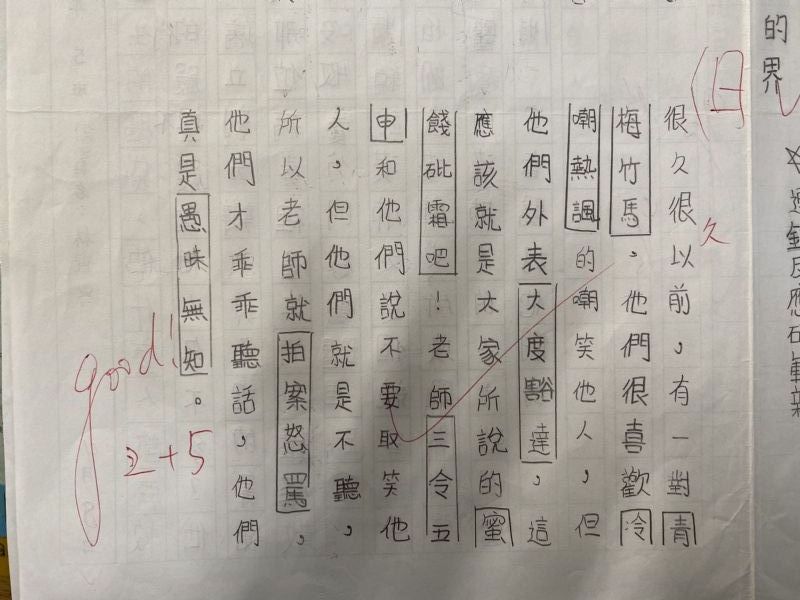 的界
很久很以前，有一對青
久
梅竹馬。他們很喜歡冷
嘲熱諷的嘲笑他人，但
他們外表大度豁達，這
應該就是大家所說的蜜
餞砒霜吧！老師三令五
申和他們說不要取笑他
人，但他們就是不聽，
所以老師就拍案怒罵，
他們才乖乖聽話，他們
真是愚昧無知。
good!
2+5